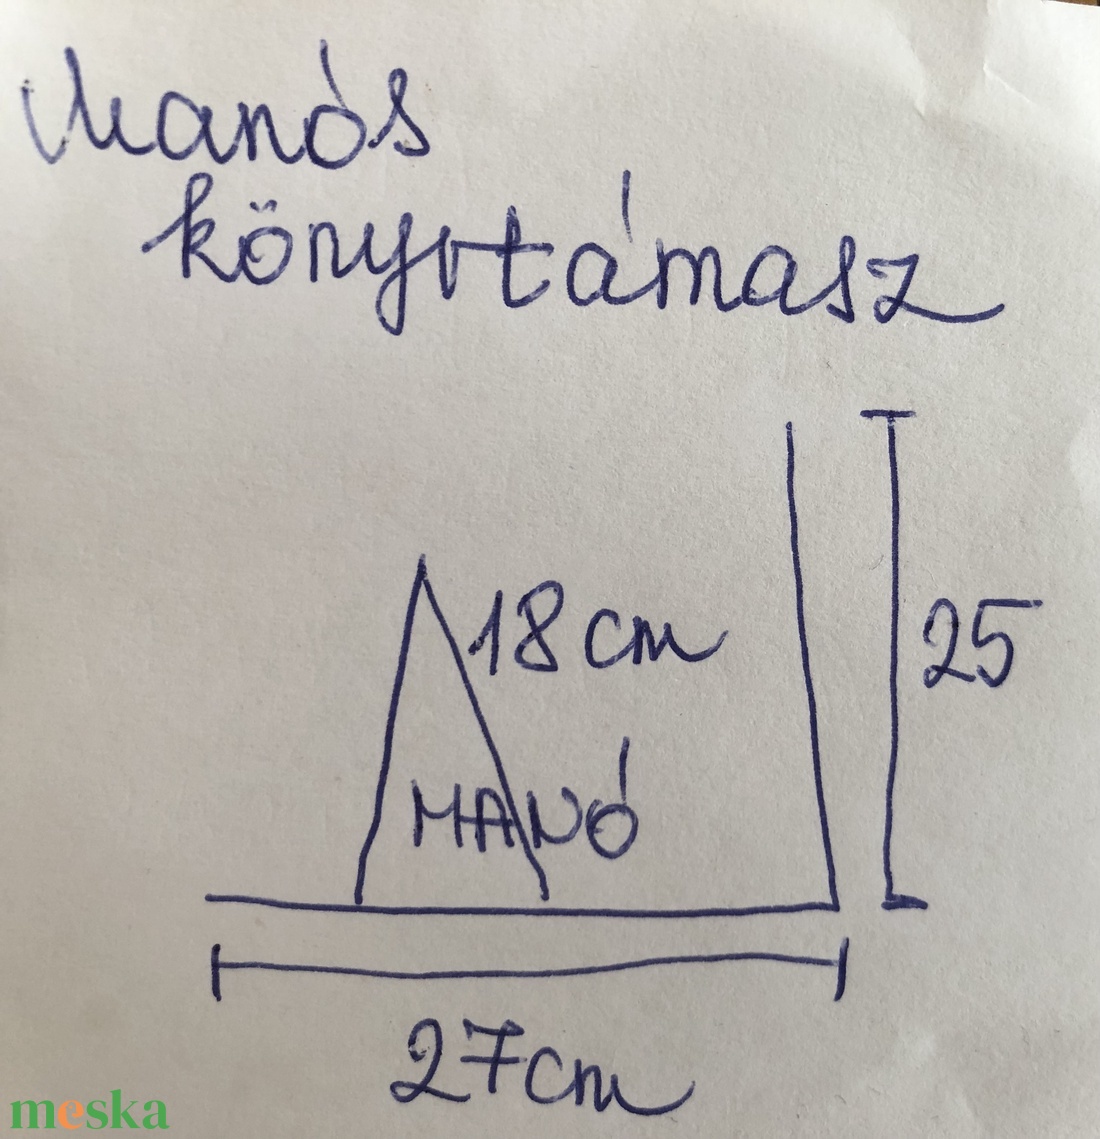 Manós
könyvtámasz
18 cm
25
MANÓ
27cm
meska